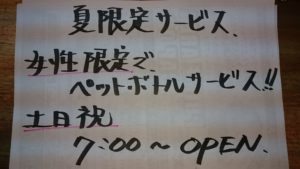 夏限定サービス、
女性限定で
ペットボトルサービス!!
土日祝
7:00〜OPEN.